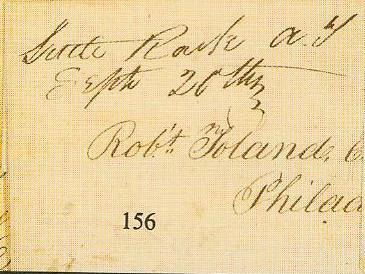 Little Rock A.T
Sept 20th
Robt. Toland, E
Philad
156